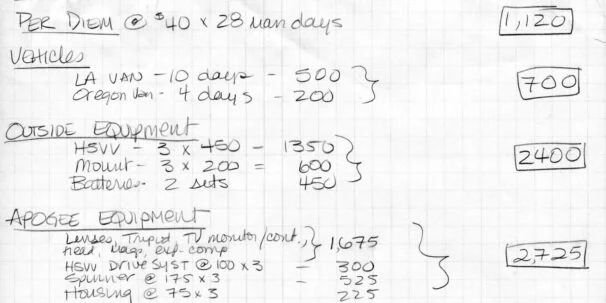 PER DIEM @ $40 x 28 man days 1,120
Vehicles
LA VAN - 10 days - 500
Oregon Van - 4 days - 200 700
OUTSIDE EQUIPMENT
HSVV - 3 x 450 - 1350
Mount - 3 x 200 = 600 2400
Batteries - 2 sets 450
APOGEE EQUIPMENT
Lenses, Tripod, TV monitor/cont., 1,675
head, mags, exp. comp
HSVV Drive Syst @ 100 x 3 - 300 2,725
Spinner @ 175 x 3 = 525
Housing @ 75 x 3 225